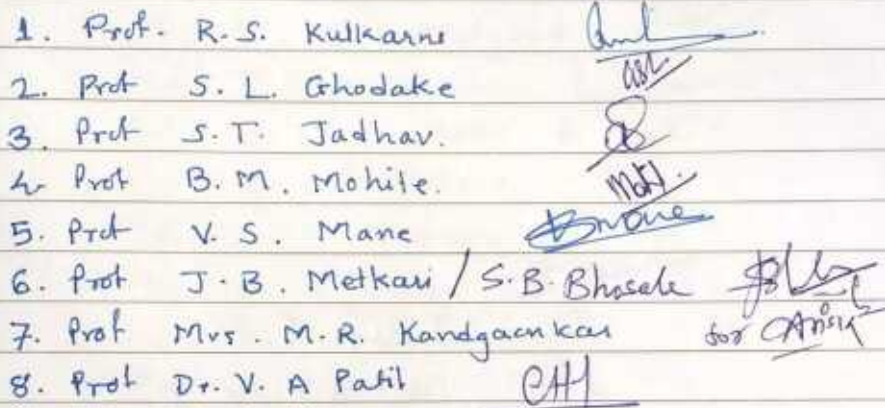 1. Prof. R.S. Kulkarni
2. Prof S. L. Ghodake
3. Prof S.T. Jadhav.
4. Prof B.M. Mohite.
5. Prof V. S. Mane
6. Prof J.B. Metkari / S.B. Bhosale
7. Prof Mrs. M.R. Kandgaonkar for
8. Prof Dr. V. A Patil